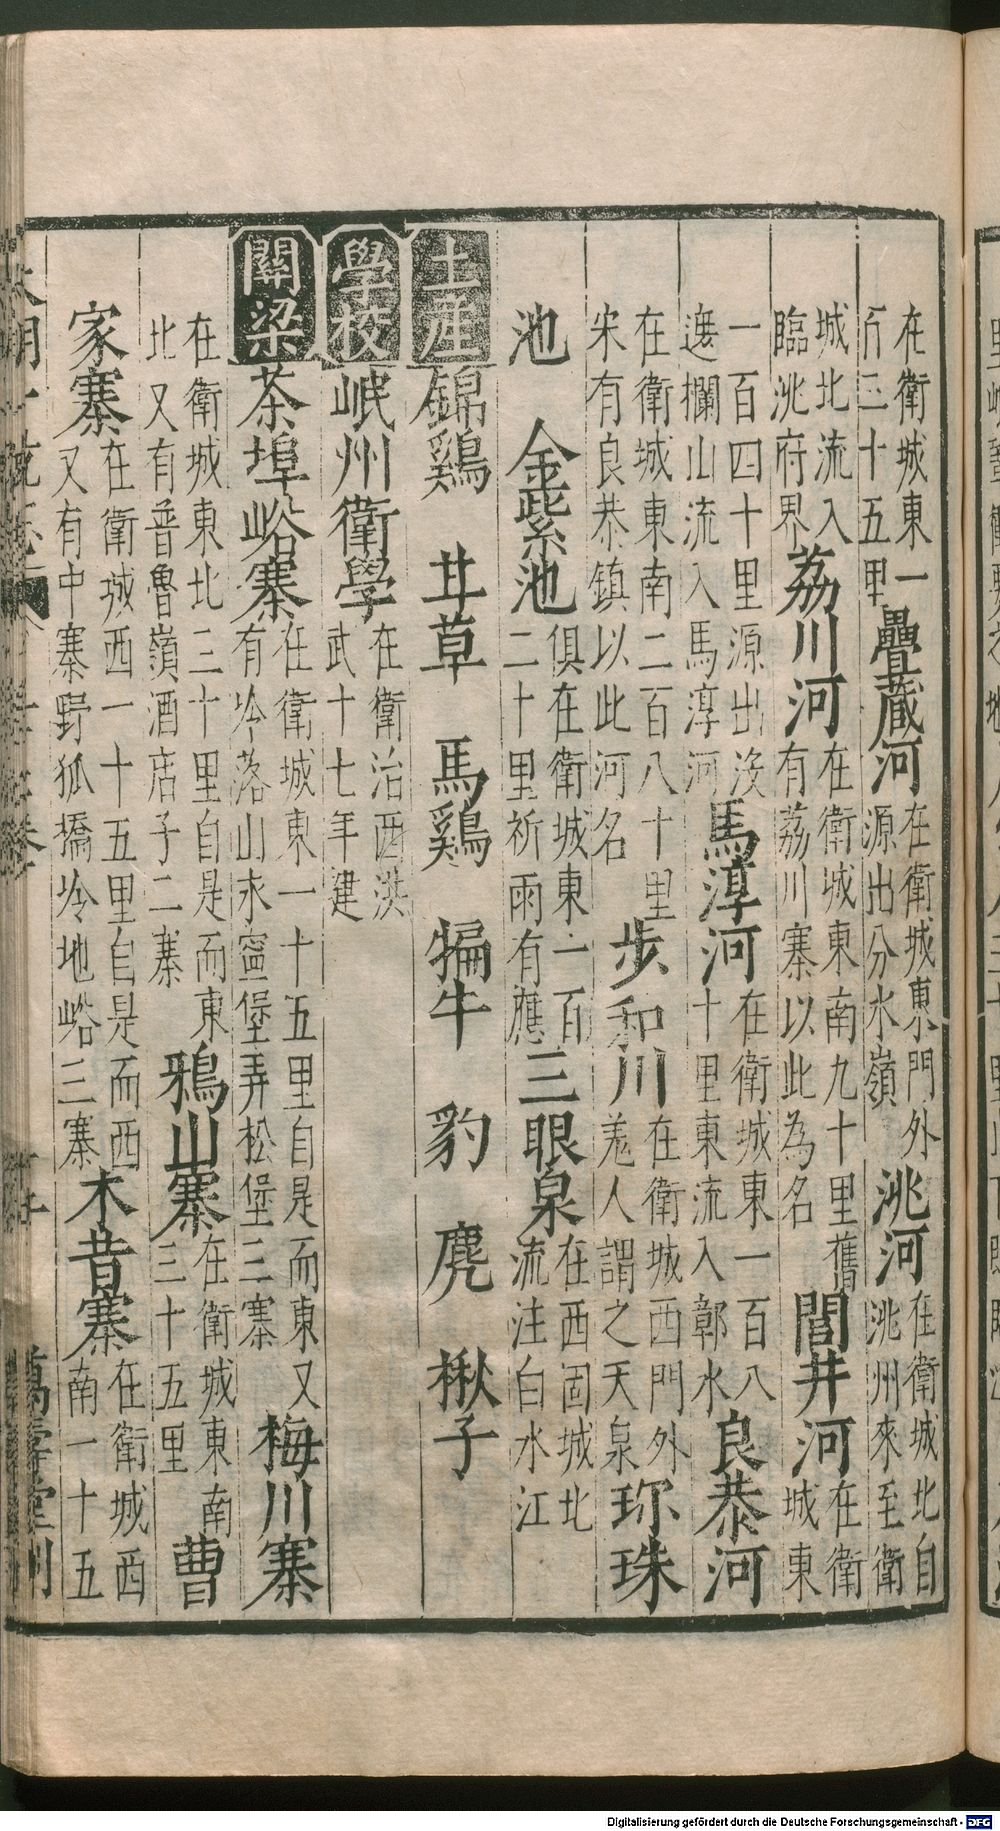 在衛城東一百三十五里疊藏河在衛城東門外源出分水嶺洮河在衛城北自洮州來至衛
城北流入臨洮府界荔川河在衛城東南九十里舊有荔川寨以此為名閭井河在衛城東
一百四十里源出沒遮攔山流入馬淳河馬淳河在衛城東一百八十里東流入鄣水良恭河
在衛城東南二百八十里宋有良恭鎮以此河名步和川在衛城西門外羗人謂之天泉珎珠
池金紫池俱在衛城東一百二十里祈雨有應三眼泉在西固城北流注白水江
土產錦鷄 茸草 馬鷄 犏牛 豹 麂 楸子
學校岷州衛學在衛治西洪武十七年建
關梁茶埠峪寨在衛城東一十五里自是而東又有坽落山永寧堡弄松堡三寨梅川寨
在衛城東北三十里自是而東北又有普魯嶺酒店子二寨鴉山寨在衛城東南三十五里曹
家寨在衛城西一十五里自是而西又有中寨野狐橋坽地峪三寨木昔寨在衛城西南一十五
萬壽堂刊
Digitalisierung gefördert durch die Deutsche Forschungsgemeinschaft - DFG